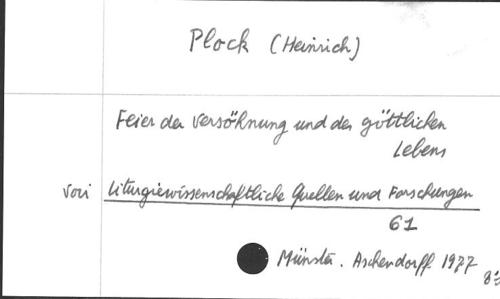 Plock (Heinrich)
Feier der Versöhnung und des göttlichen
Lebens
voir Liturgiewissenschaftliche Quellen und Forschungen
61
Münster. Aschendorff 1977
8°